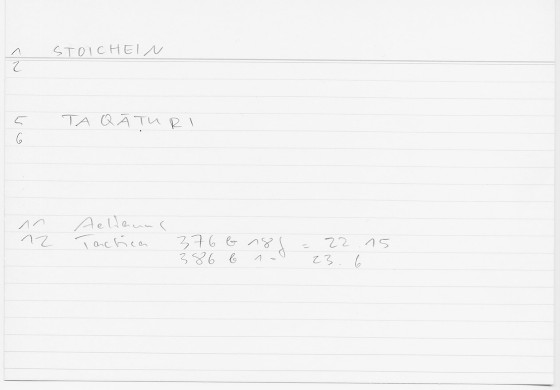 1 STOICHEIN
2
5 TAQĀṬURI
6
11 Aelianus
12 Tactica 376 b 18f = 22.15
386 b 1- 23.6